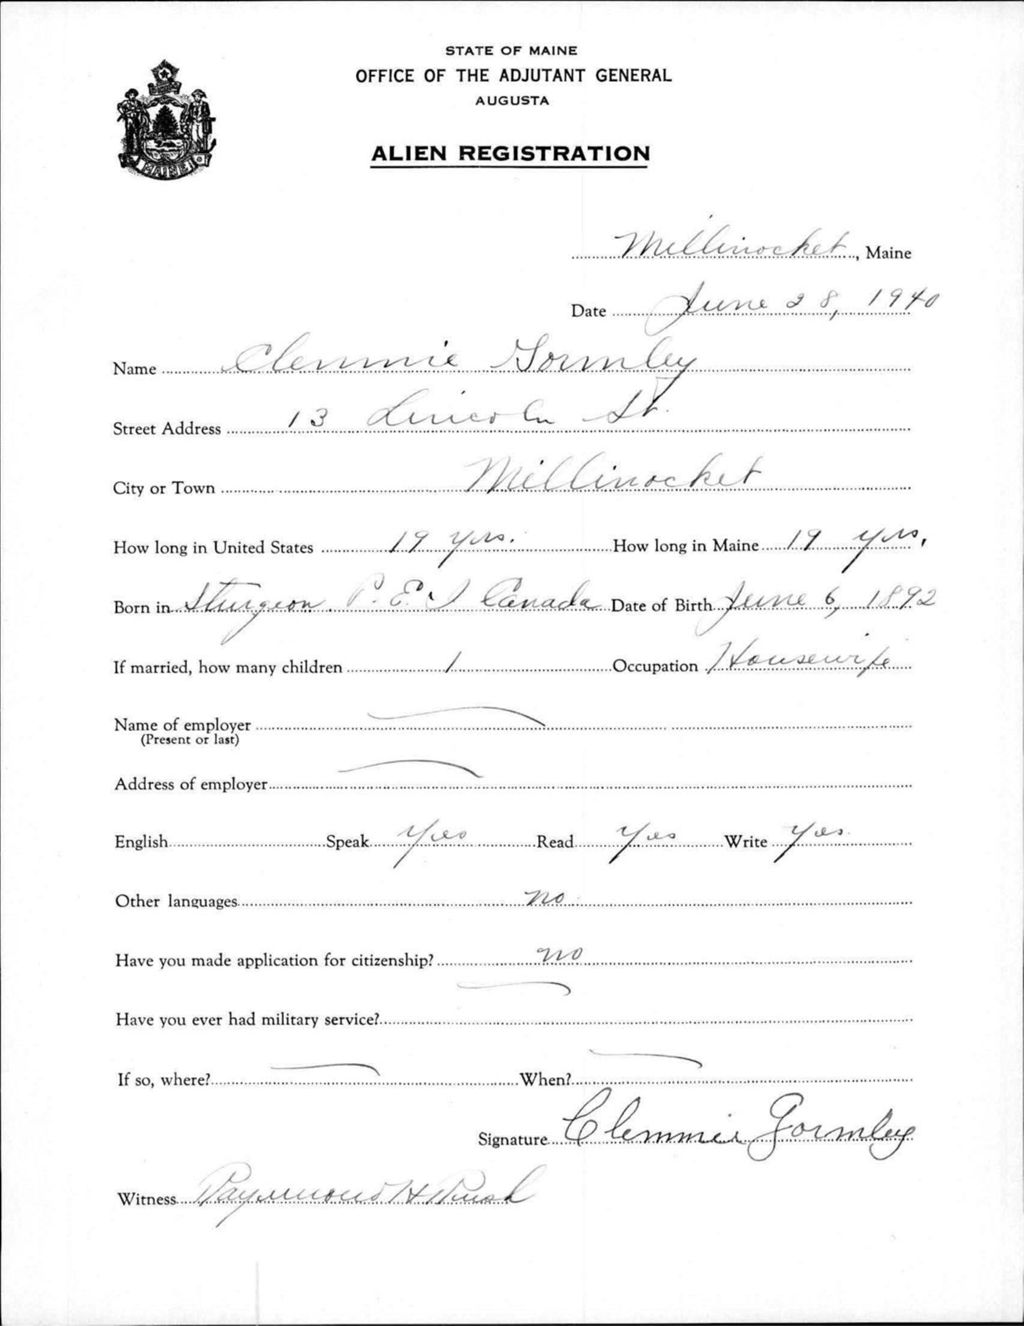 STATE OF MAINE
OFFICE OF THE ADJUTANT GENERAL
AUGUSTA
ALIEN REGISTRATION
MAINE
Millinocket, Maine
Date June 28, 1940
Name Clemmie Gormley
Street Address 13 Lincoln St.
City or Town Millinocket
How long in United States 19 yrs. How long in Maine 19 yrs.
Born in Sturgeon P.E.I Canada Date of Birth June 6, 1892
If married, how many children 1 Occupation Housewife
Name of employer
(Present or last)
Address of employer
English Speak Yes Read Yes Write Yes
Other languages no
Have you made application for citizenship? no
Have you ever had military service?
If so, where? When?
Signature Clemmie Gormley
Witness Raymond H Rush